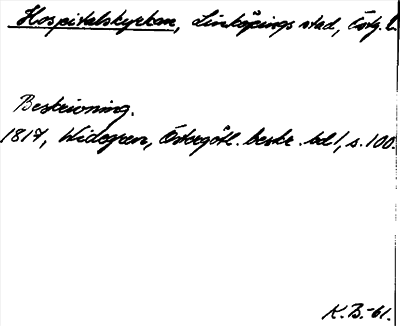 Hospitalskyrkan, Linköpings stad, Östg. l.
Beskrivning.
1817, Widegren, Östergötl. beskr. bd 1, s. 100.
K.B.-61.